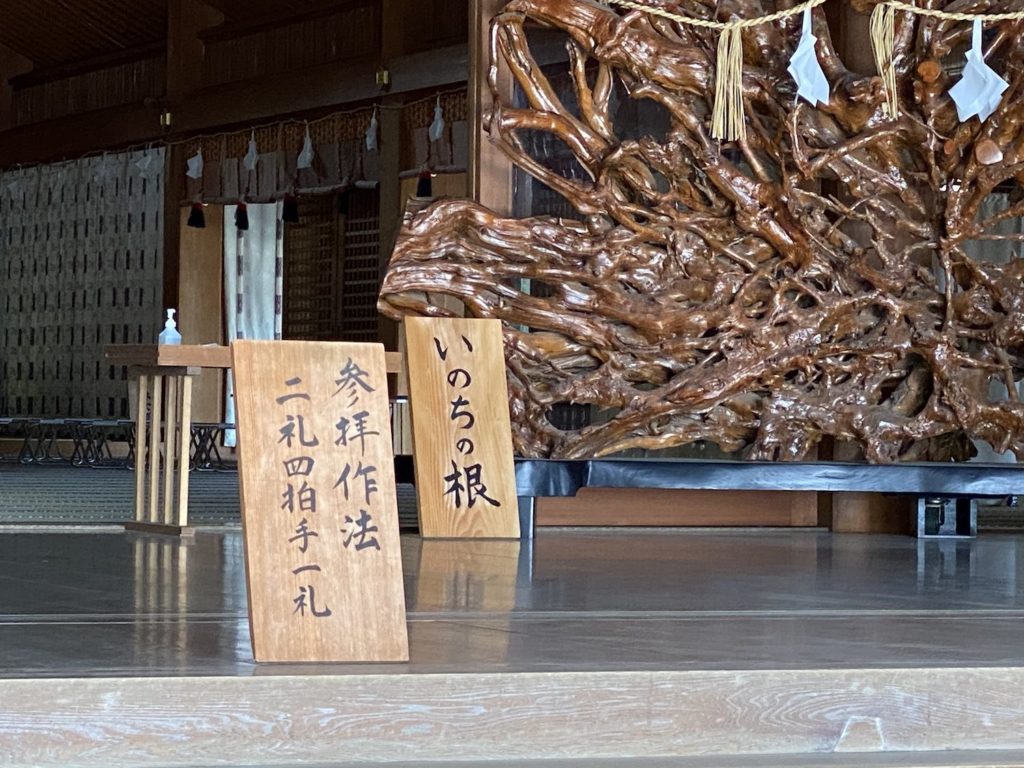 参拝作法
二礼四拍手一礼
いのちの根